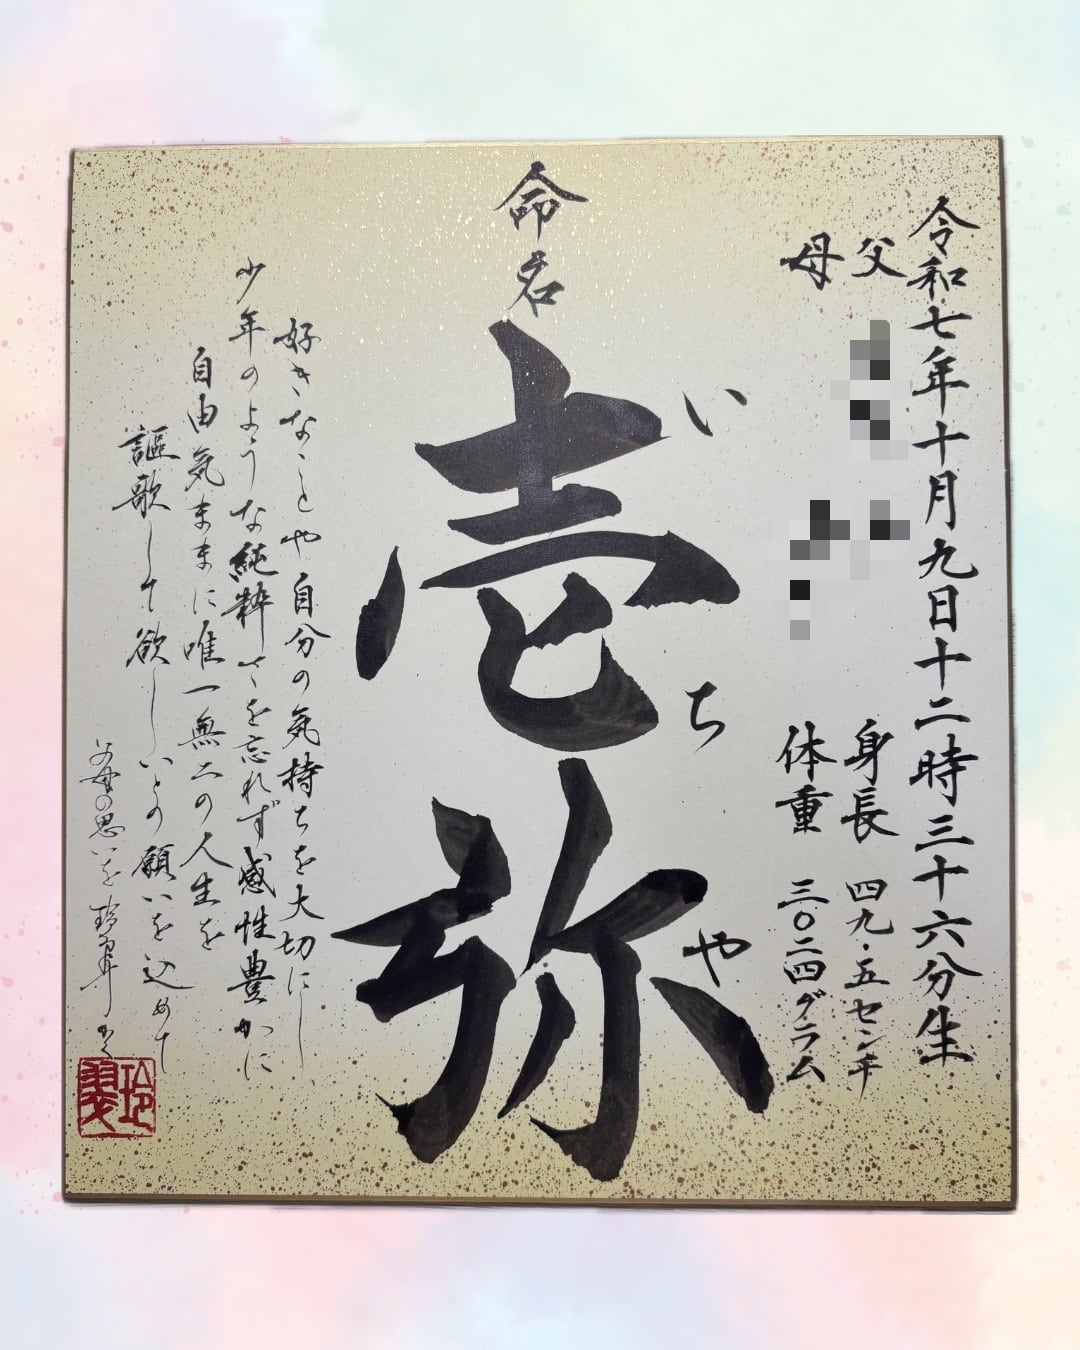 令和七年十月九日十二時三十六分生
父
母
身長 四九・五センチ
体重 三〇二四グラム
命名
壱弥
いちや
好きなことや自分の気持ちを大切にし、
少年のような純粋さを忘れず感性豊かに
自由気ままに唯一無二の人生を
謳歌して欲しいとの願いを込めて
父母の思いを